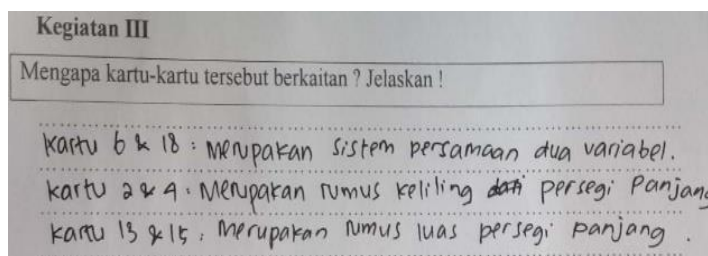 Kegiatan III
Mengapa kartu-kartu tersebut berkaitan ? Jelaskan !
Kartu 6 & 18 : Merupakan sistem persamaan dua variabel.
Kartu 2 & 4 : Merupakan rumus keliling dari persegi Panjang
Kartu 13 & 15 : Merupakan rumus luas persegi panjang .